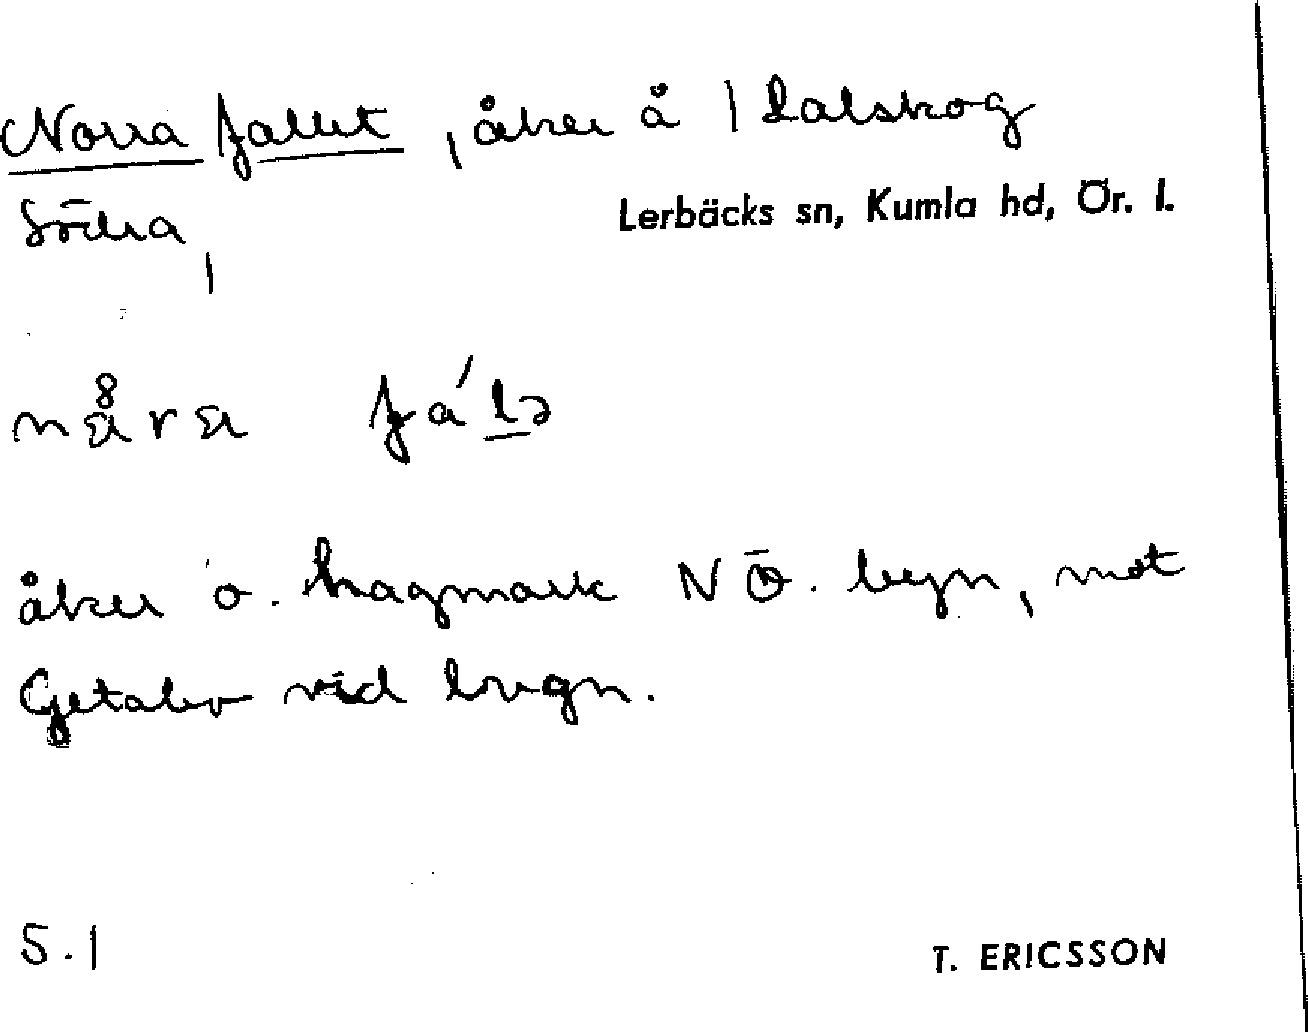 Norra fallet, åker å 1 Dalskog
Södra,
Lerbäcks sn, Kumla hd, Ör. l.
åker o. hagmark NÖ. byn, mot
Getabo vid bvgn.
S.1
T. ERICSSON